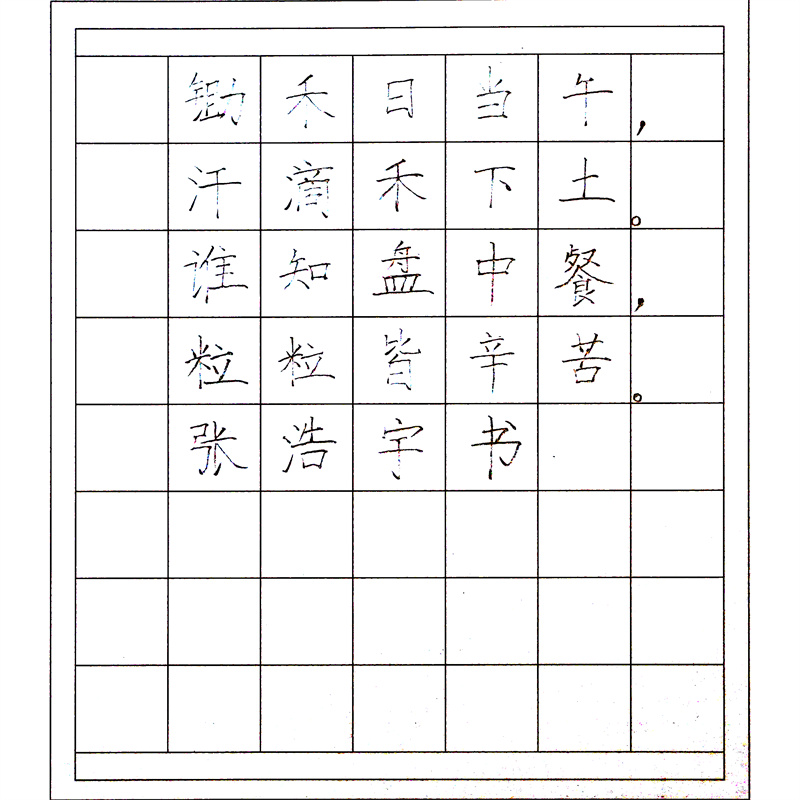 锄禾日当午，
汗滴禾下土。
谁知盘中餐，
粒粒皆辛苦。
张浩宇书